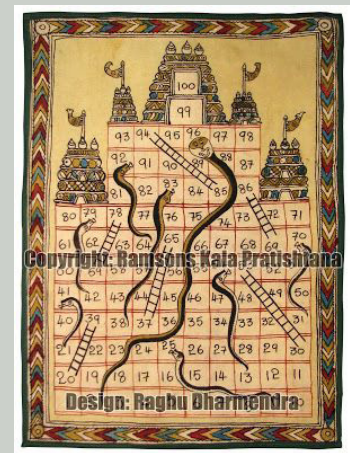 100
99
93 94 95 96 97 98
92 91 90 89 88 87
81 82 83 84 85 86
80 79 78 77 76 74 73 72 71
61 62 64 65 66 67 69 70
Copyright: Ramsons Kala Pratishtana
41 42 43 44 45 46 47 48 49 50
40 39 38 37 36 35 34 33 32 31
21 22 23 24 25 26 27 28 29 30
20 19 18 17 16 15 14 13 12 11
Design: Raghu Dharmendra